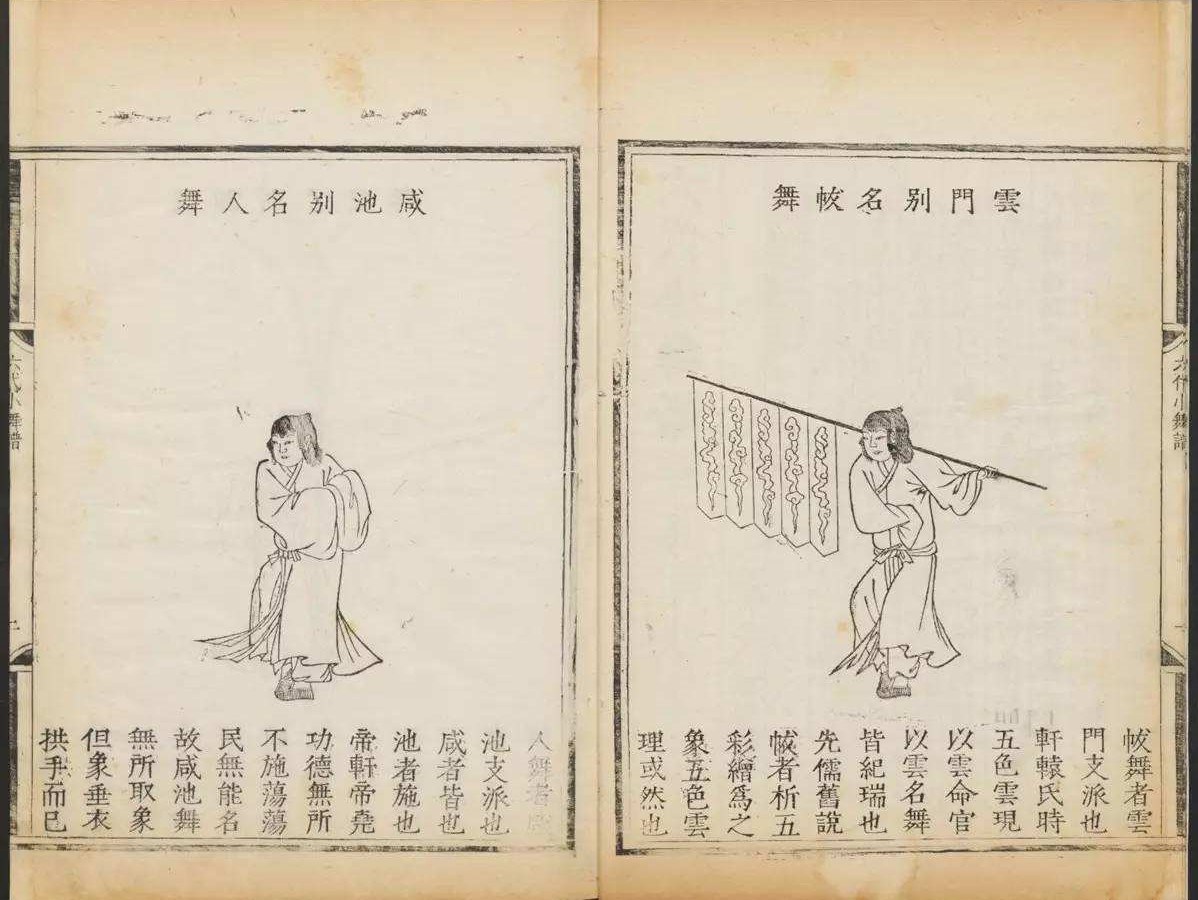 雲門別名帗舞
帗舞者雲
門支派也
軒轅氏時
五色雲現
以雲命官
以雲名舞
皆紀瑞也
先儒舊說
帗者析五
彩繒爲之
象五色雲
理或然也
六代小舞譜
咸池別名人舞
人舞者咸
池支派也
咸者皆也
池者施也
帝軒帝堯
功德無所
不施蕩蕩
民無能名
故咸池舞
無所取象
但象垂衣
拱手而已
六代小舞譜